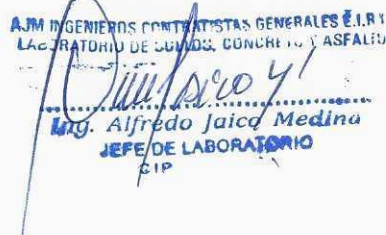 AJM INGENIEROS CONTRATISTAS GENERALES E.I.R.L
LABORATORIO DE SUELOS, CONCRETO Y ASFALTO
Ing. Alfredo Jaico Medina
JEFE DE LABORATORIO
CIP